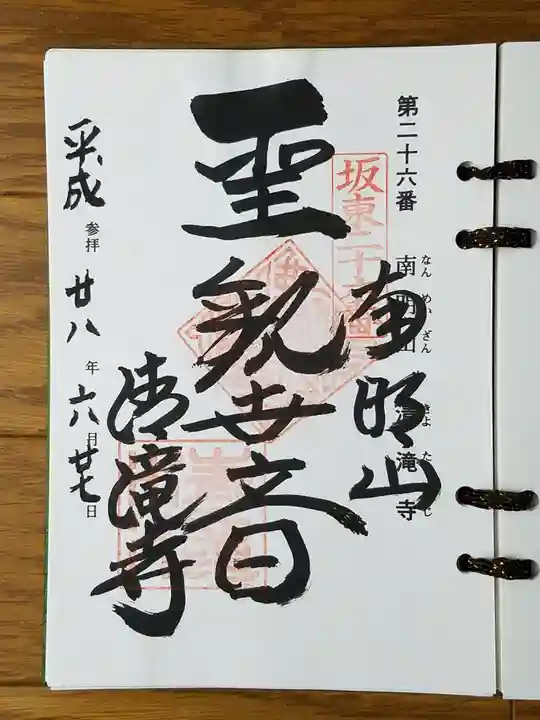 第二十六番 南明山 清滝寺
なんめいざん きよたきじ
坂東二十六番
南明山
聖観世音
清滝寺
平成 参拝 廿八 年 六 月 廿七 日